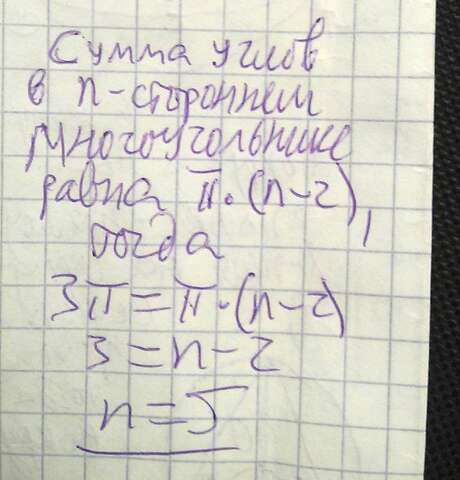 Сумма углов
в n-стороннем
многоугольнике
равна π·(n-2),
тогда
3π=π·(n-2)
3=n-2
n=5